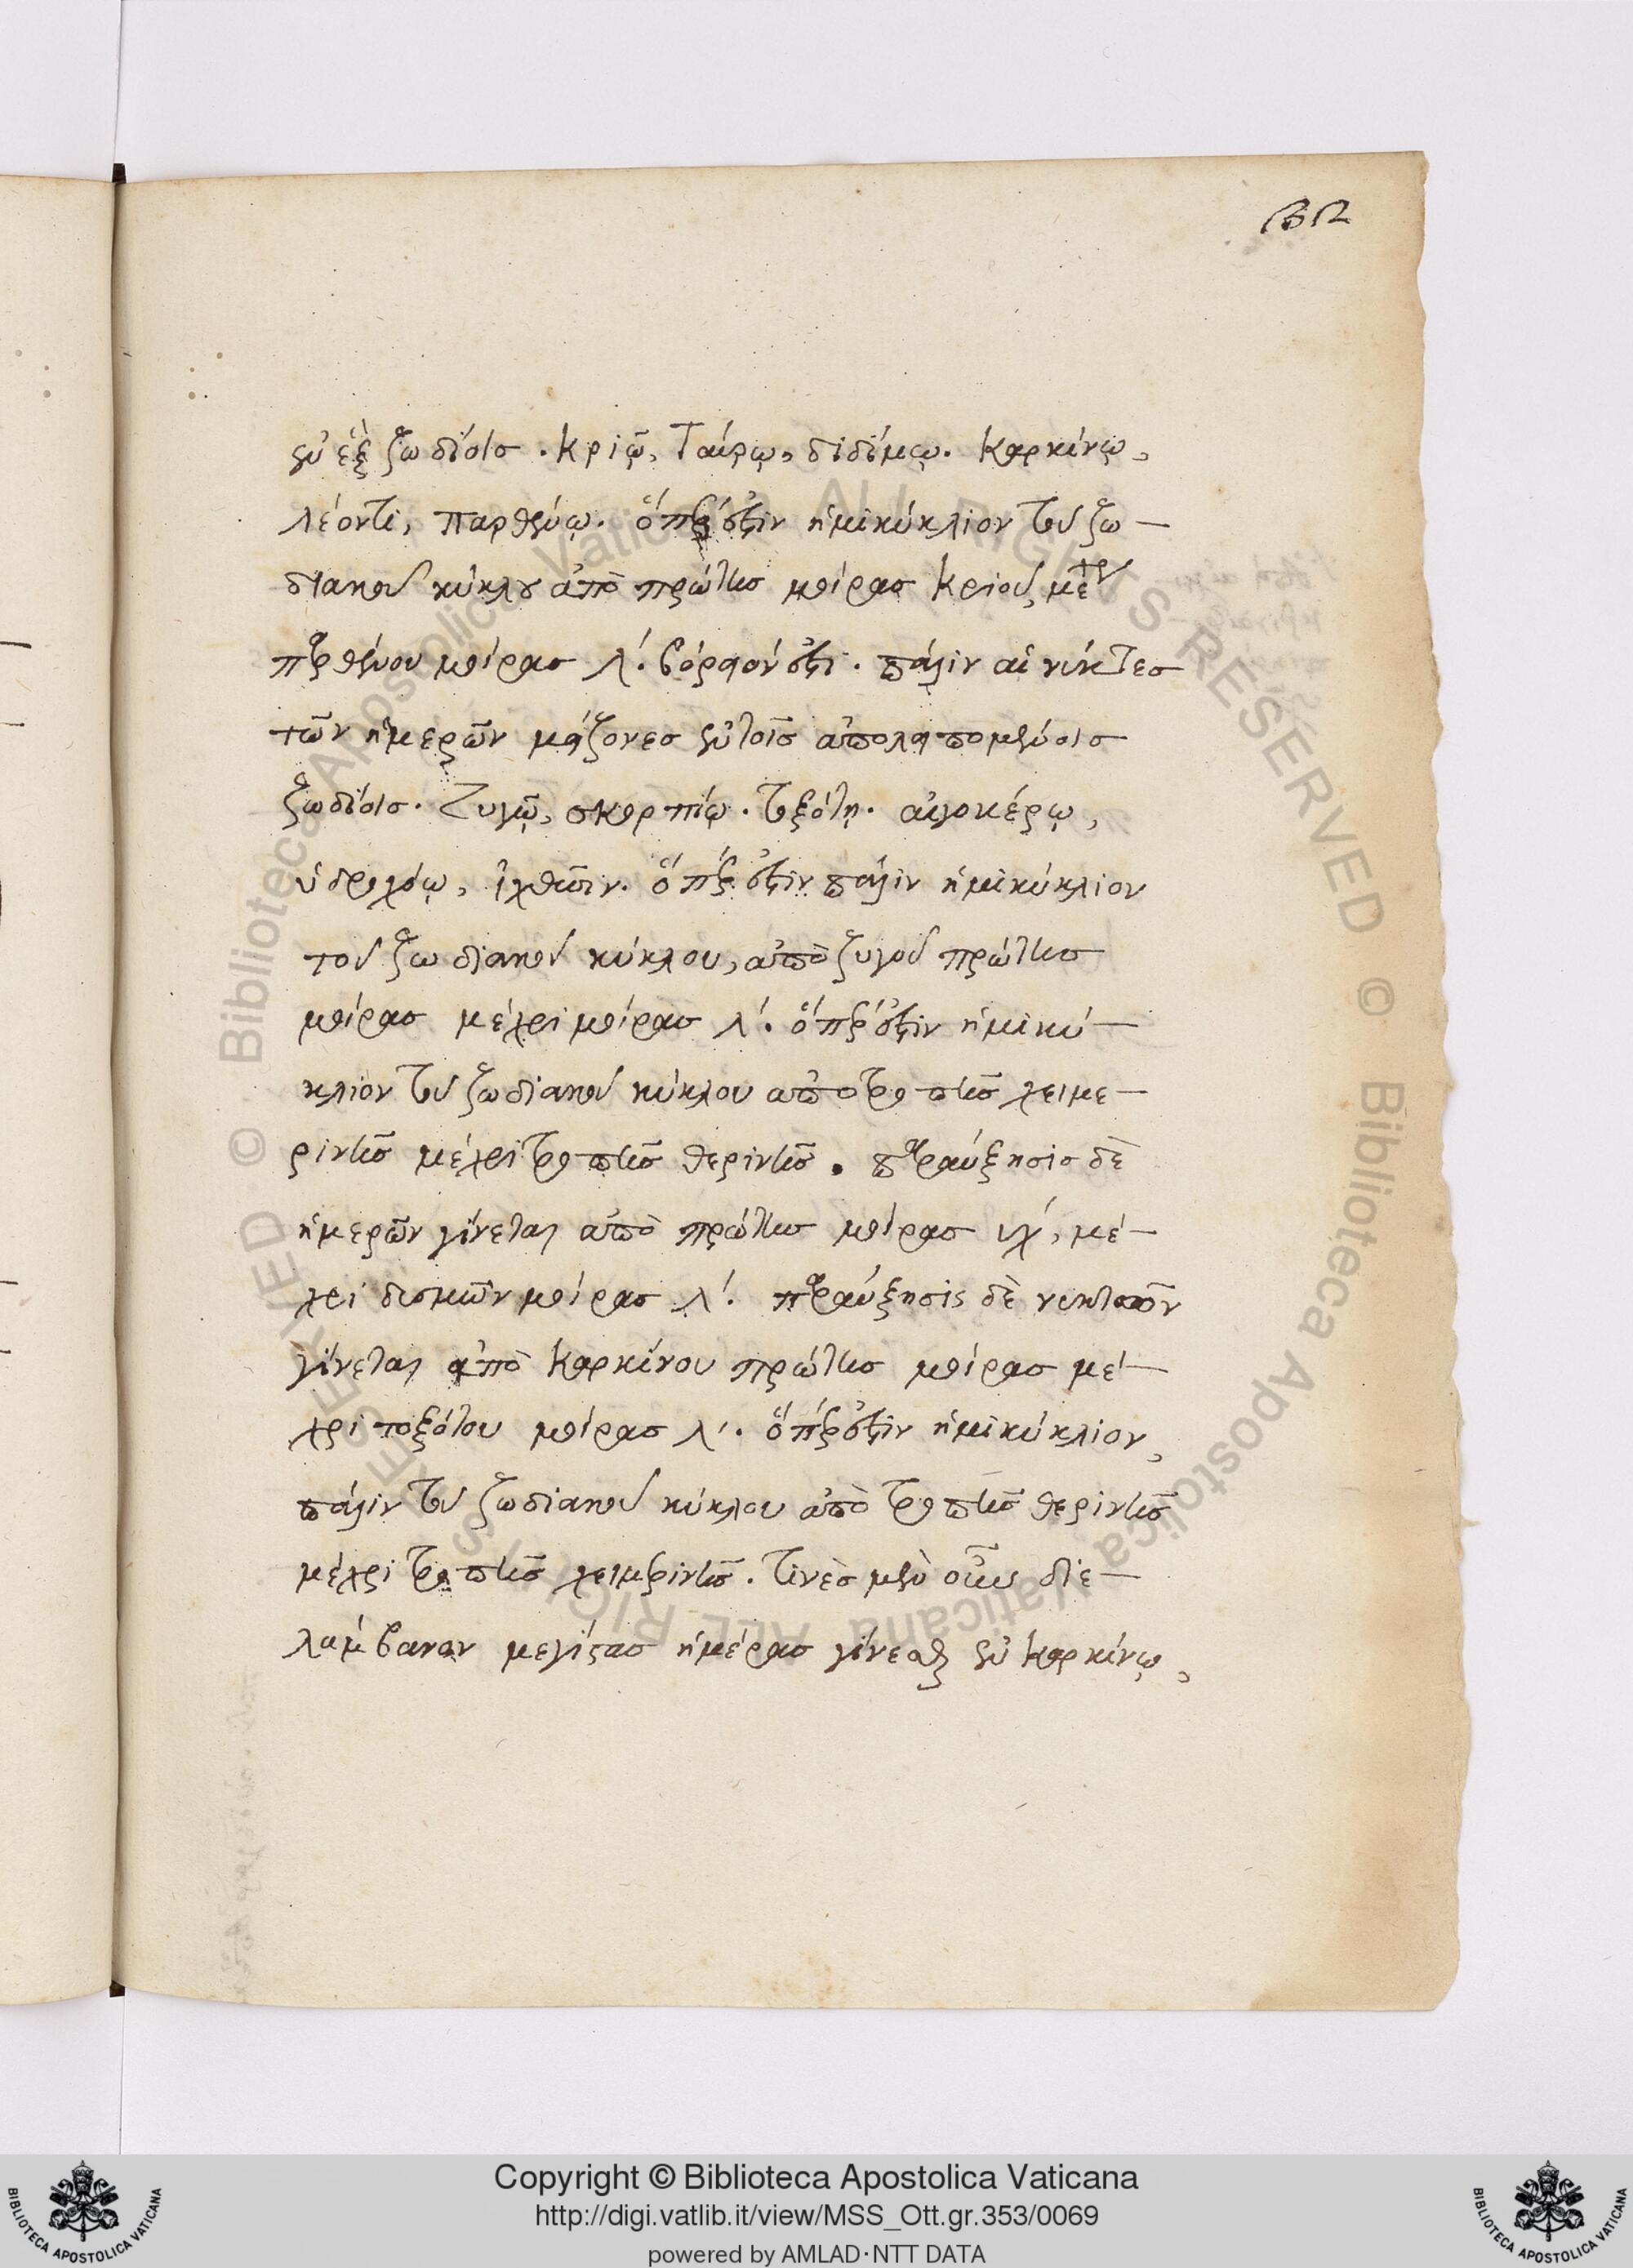 ἐν ἓξ ζωδίοις. κριῷ, Ταύρῳ, διδύμῳ. καρκίνῳ,
λέοντι, παρθένῳ. ὅπερ ἐστὶν ἡμικύκλιον τοῦ ζω–
διακοῦ κύκλου ἀπὸ πρώτης μοίρας κριοῦ,
παρθένου μοίρας λ΄. βόρειόν ἐστι. πάλιν αἱ νύκτες
τῶν ἡμερῶν μείζονες ἐν τοῖς ἀπολειπομένοις
ζωδίοις. Ζυγῷ, σκορπίῳ. τοξότῃ. αἰγοκέρῳ,
ὑδροχόῳ, ἰχθῦσιν. ὅπερ ἐστὶν πάλιν ἡμικύκλιον
τοῦ ζωδιακοῦ κύκλου, ἀπὸ ζυγοῦ πρώτης
μοίρας μέχρι μοίρας λ΄. ὅπερ ἐστὶν ἡμικύ–
κλιον τοῦ ζωδιακοῦ κύκλου ἀπὸ τροπῆς χειμε–
ρινῆς μέχρι τροπῆς θερινῆς. παραύξησις δὲ
ἡμερῶν γίνεται ἀπὸ πρώτης μοίρας μέ–
χρι μοίρας λ΄. παραύξησις δὲ νυκτῶν
γίνεται ἀπὸ καρκίνου πρώτης μοίρας μέ–
χρι τοξότου μοίρας λ΄. ὅπερ ἐστὶν ἡμικύκλιον,
πάλιν τοῦ ζωδιακοῦ κύκλου ἀπὸ τροπῆς θερινῆς
μέχρι τροπῆς χειμερινῆς. Τινὲς μὲν οὖν διε–
λάμβανον μεγίστας ἡμέρας γίνεσθαι ἐν καρκίνῳ,
© Biblioteca Apostolica Vaticana ALL RIGHTS RESERVED © Biblioteca Apostolica Vaticana ALL RIGHTS RESERVED
Copyright © Biblioteca Apostolica Vaticana
http://digi.vatlib.it/view/MSS_Ott.gr.353/0069
powered by AMLAD·NTT DATA
BIBLIOTECA APOSTOLICA VATICANA
BIBLIOTECA APOSTOLICA VATICANA